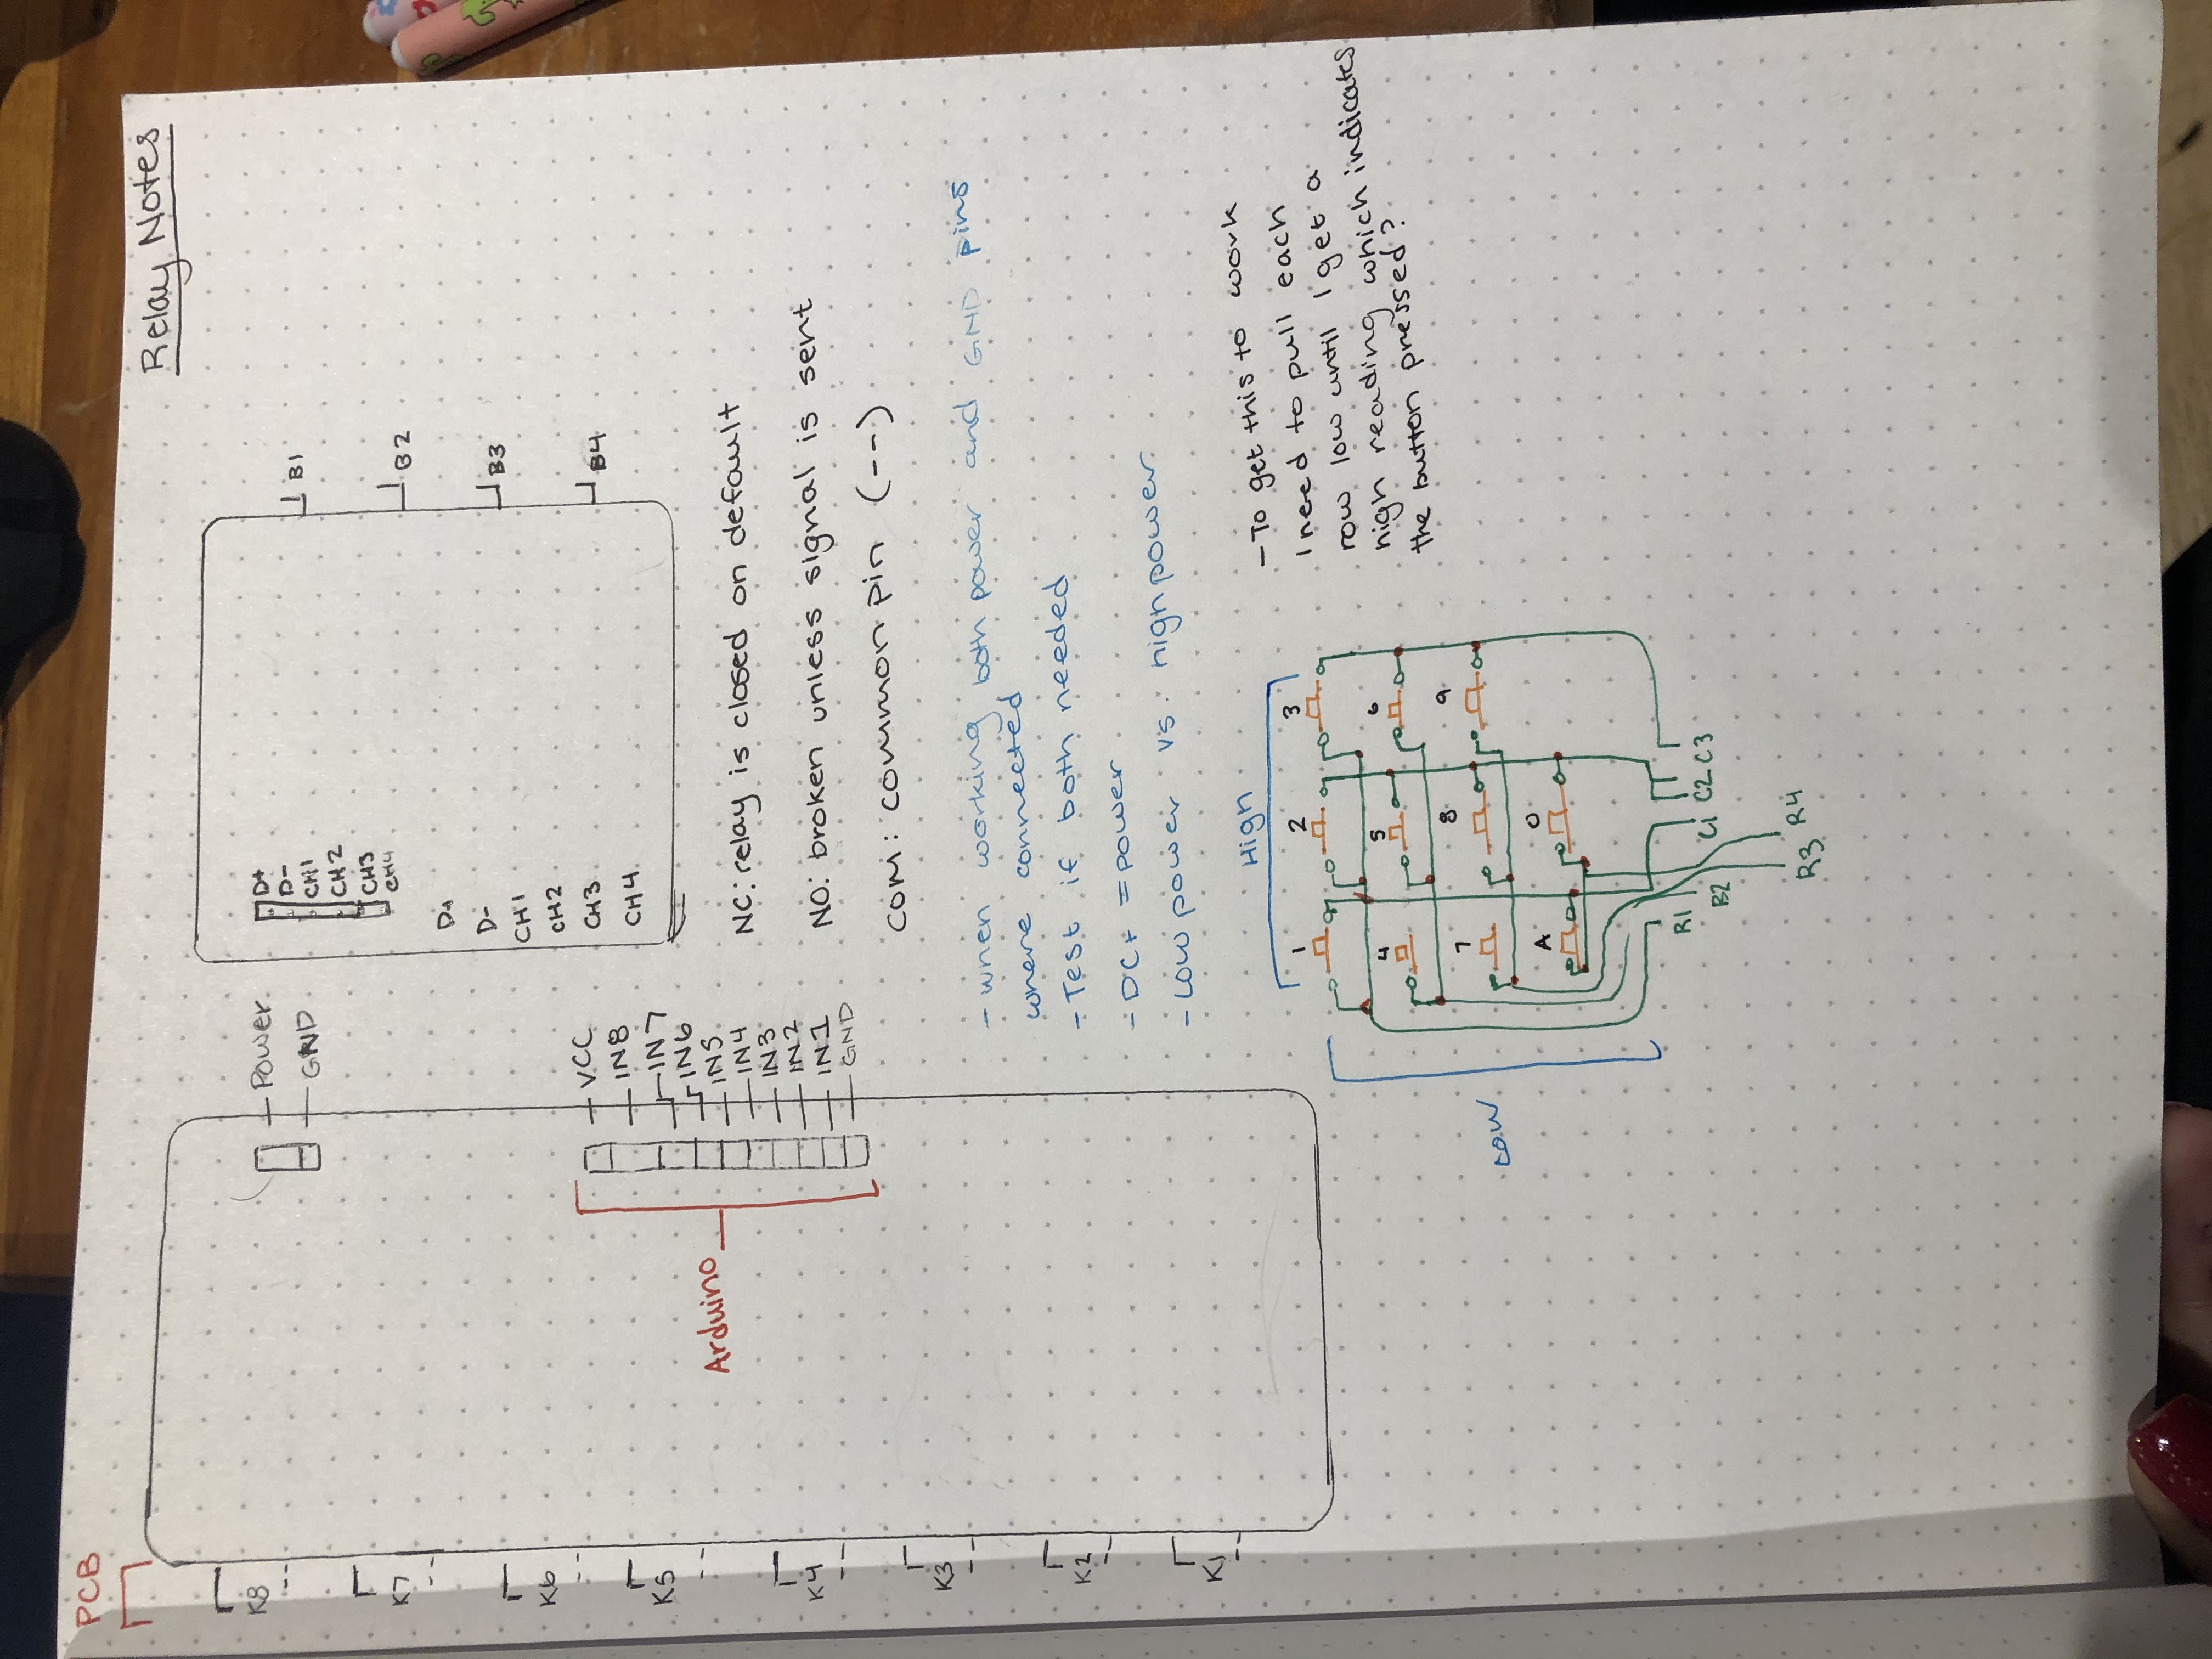 PCB
Relay Notes
K8
K7
K6
K5
K4
K3
K2
K1
Power
GND
Arduino
VCC
IN8
IN7
IN6
IN5
IN4
IN3
IN2
IN1
GND
D+
D-
CH1
CH2
CH3
CH4
D+
D-
CH1
CH2
CH3
CH4
B1
B2
B3
B4
NC: relay is closed on default
NO: broken unless signal is sent
COM: common pin (--)
- when working both power and GND pins
where connected
- Test if both needed
- DC+ = power
- Low power vs. high power
High
Low
1 2 3
4 5 6
7 8 9
A 0
R1
B2
R3
R4
C1
C2
C3
- To get this to work
I need to pull each
row low until I get a
high reading which indicates
the button pressed?